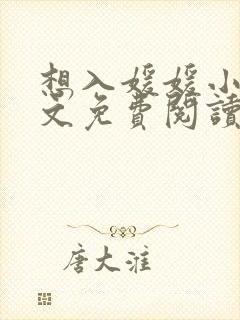 想入媛媛小
文免費閱讀
唐大淮